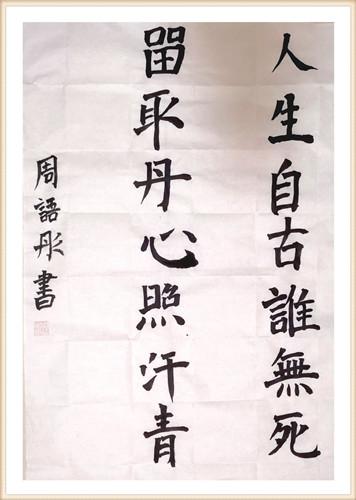 人生自古誰無死
留取丹心照汗青
周語彤書